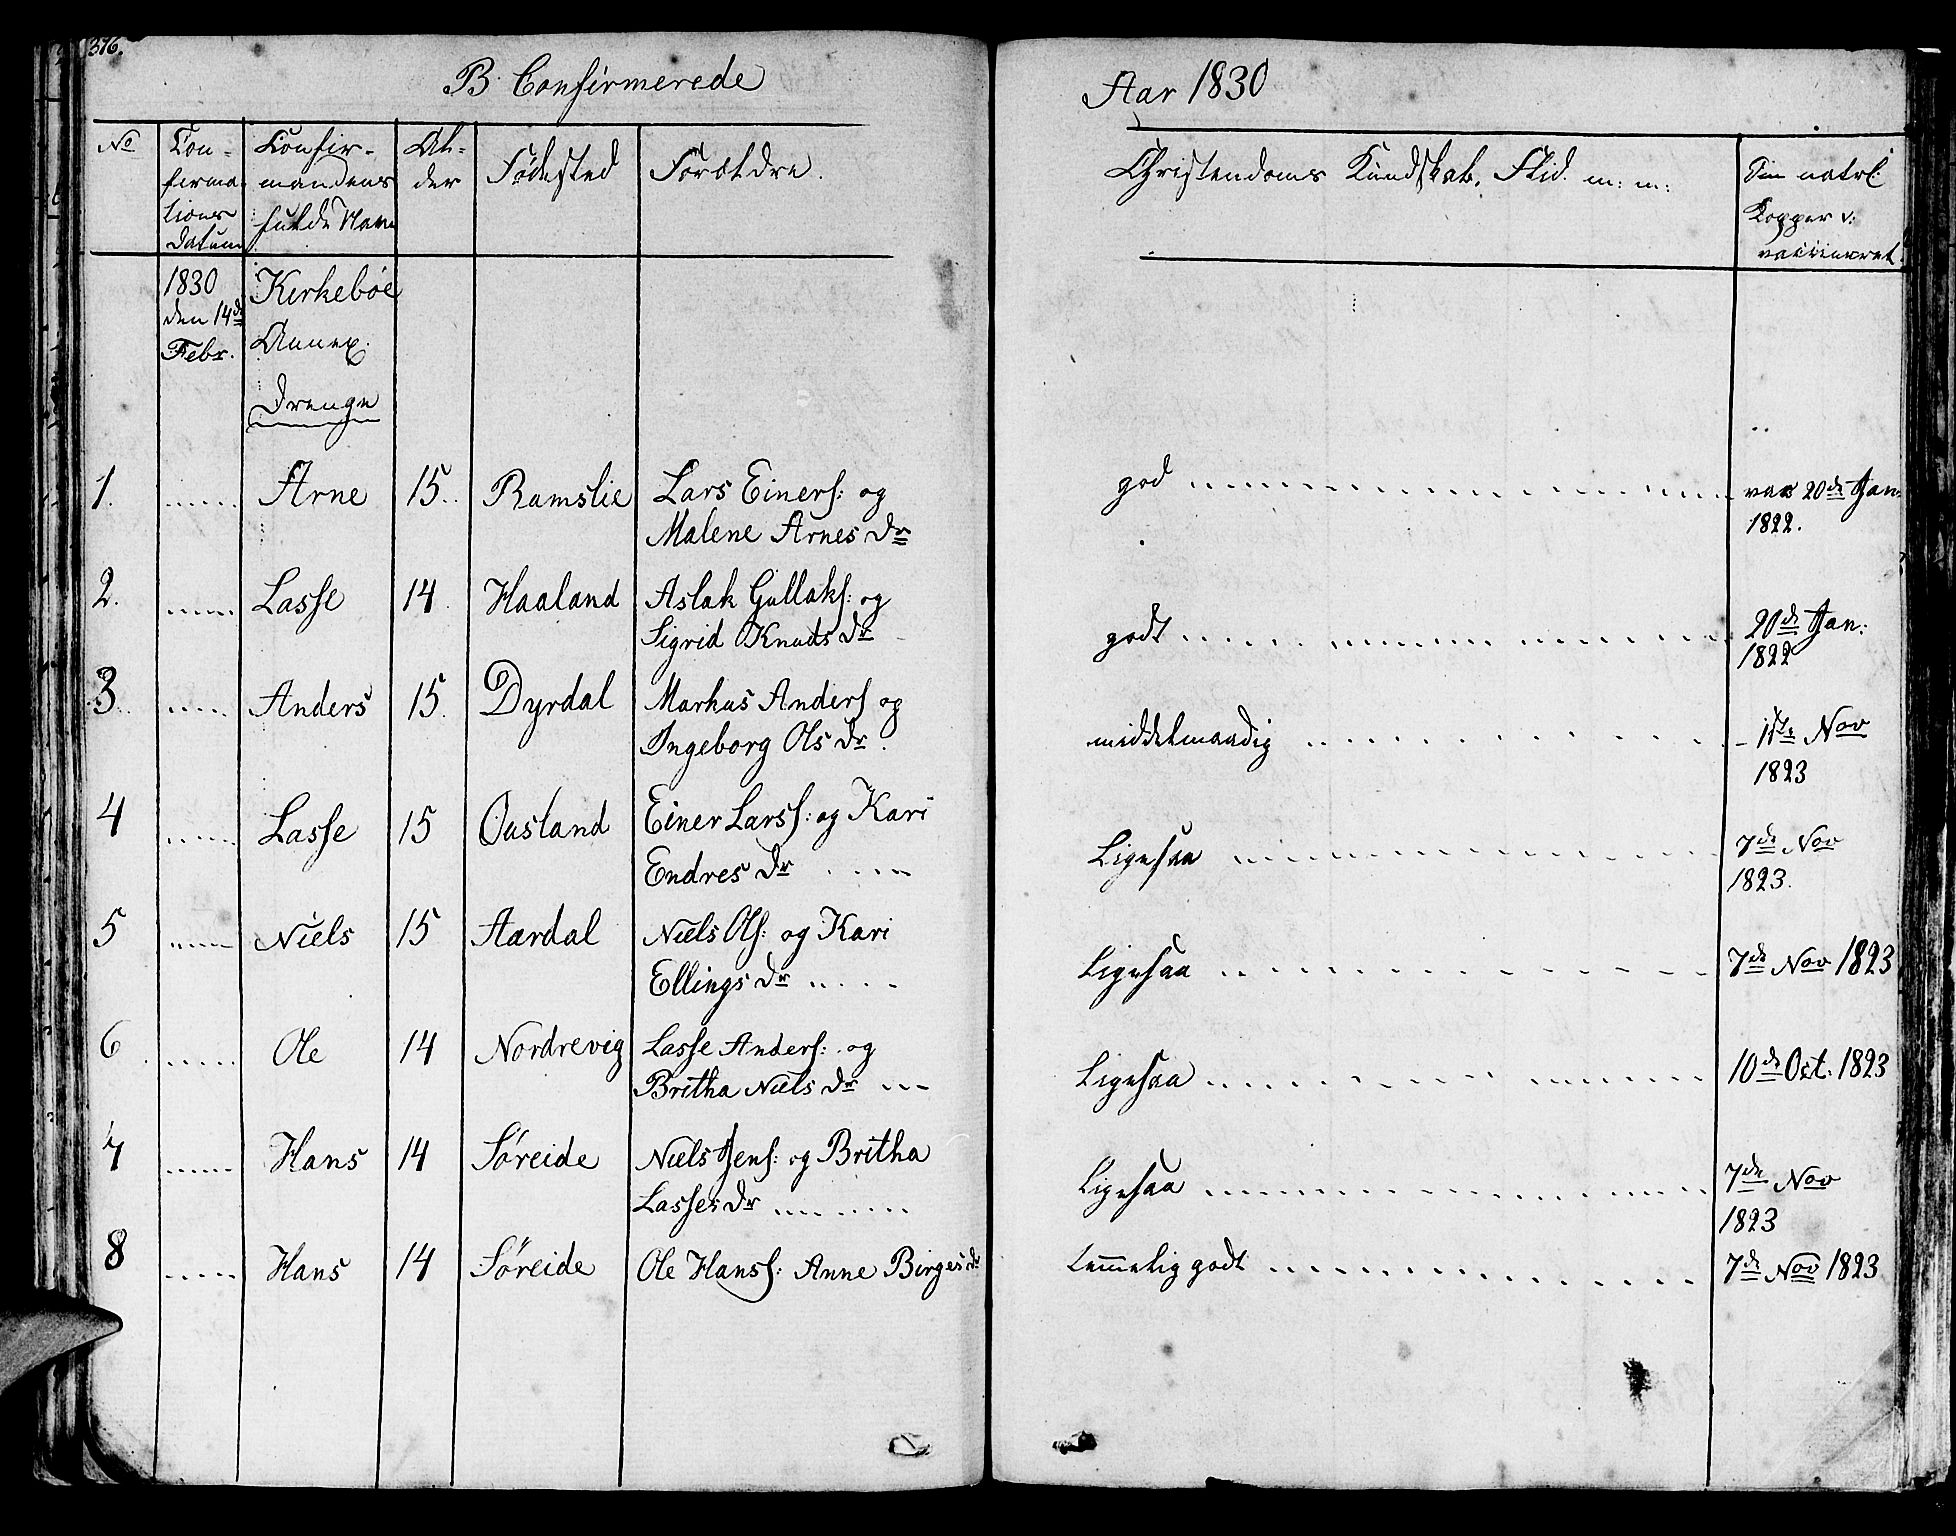 376.
B. Confirmerede
No
Con-
firma-
tions
Datum
Confir-
mandens
fulde Navn
Al-
der
Fødested
Forældre.
1830
den 14de
Febr.
Kirkebøe
Annex.
Drenge
1. Arne 15. Ramslie Lars Einers: og
Malene Arnes Dr
2. Lasse 14. Haaland Aslak Gullaks: og
Sigrid Knuds Dr
3. Anders 15. Dyrdal Markus Anders og
Ingeborg Ols Dr.
4 Lasse 15 Ousland Einer Larss: og Kari
Endres Dr
5 Niels 15 Aardal Niels Ols: og Kari
Ellings Dr
6 Ole 14 Nordrevig Lasse Anders: og
Britha Niels Dr
7 Hans 14 Søreide Niels Jens: og Britha
Lasses Dr
8 Hans 14 Søreide Ole Hanss: Anne Birges Dr
Aar 1830
Christendoms Kundskab, Flid. m: m:
Den natrl:
Kopper v:
vaccineret.
god vac 20de Jan:
1822.
godt 20de Jan:
1822
middelmaadig 1ste Nov
1823
Ligesaa 7de Nov
1823.
Ligesaa 7de Nov 1823
Ligesaa 10de Oct. 1823
Ligesaa 7de Nov
1823
temmelig godt 7de Nov 1823